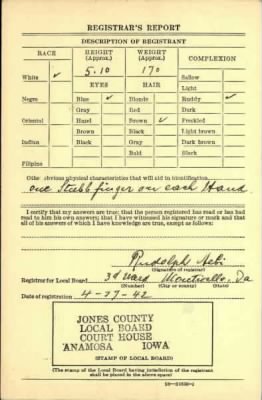 REGISTRAR'S REPORT
DESCRIPTION OF REGISTRANT
RACE HEIGHT (Approx.) WEIGHT (Approx.) COMPLEXION
White ✓ 5.10 170 Sallow
EYES HAIR Light
Negro Blue ✓ Blonde Ruddy ✓
Gray Red Dark
Oriental Hazel Brown ✓ Freckled
Brown Black Light brown
Indian Black Gray Dark brown
Bald Black
Filipino
Other obvious physical characteristics that will aid in identification
one Stubb finger on each Hand
I certify that my answers are true; that the person registered has read or has had read to him his own answers; that I have witnessed his signature or mark and that all of his answers of which I have knowledge are true, except as follows:
Rudolph
(Signature of registrar)
Registrar for Local Board 3d Ward Monticello, Ia
(Number) (City or county) (State)
Date of registration 4-27-42
JONES COUNTY
LOCAL BOARD
COURT HOUSE
ANAMOSA IOWA
(STAMP OF LOCAL BOARD)
(The stamp of the Local Board having jurisdiction of the registrant shall be placed in the above space)